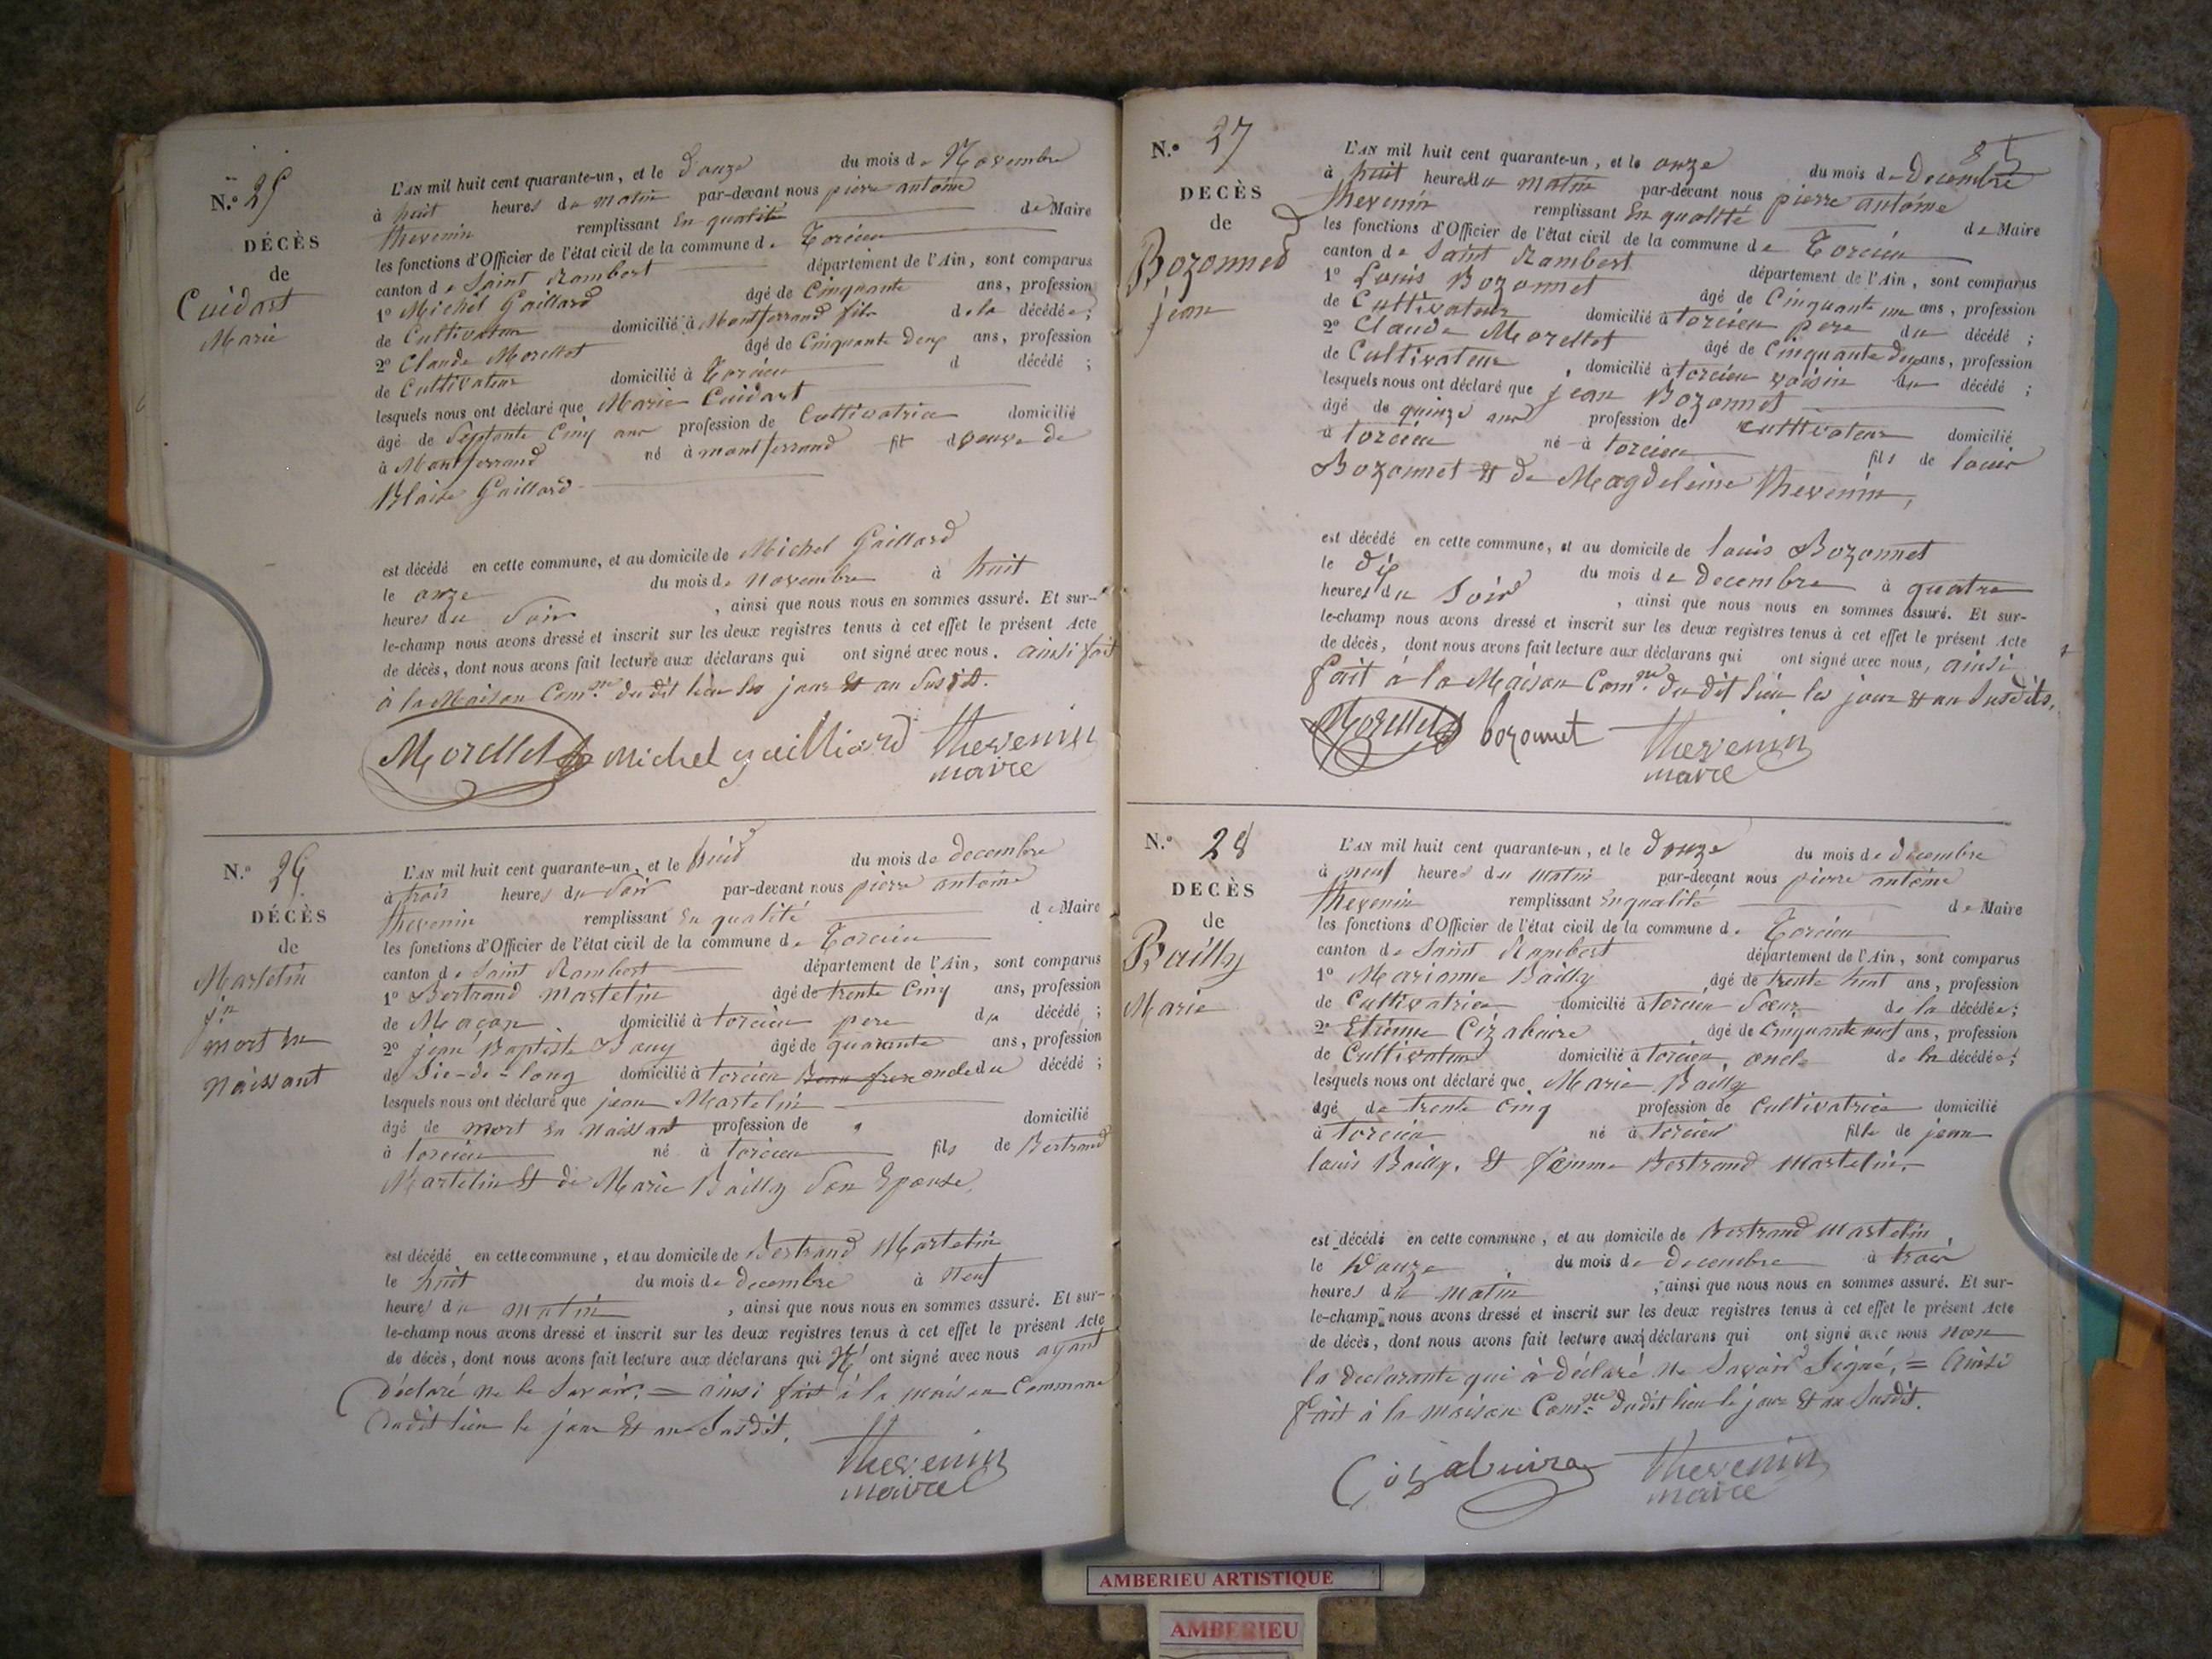 N.º 25
DÉCÈS
de
Cuidart
Marie
L'AN mil huit cent quarante-un, et le douze du mois de Novembre
à huit heures du matin par-devant nous pierre antoine
thevenin remplissant En qualité de Maire
les fonctions d'Officier de l'état civil de la commune de Torcieu
canton de Saint Rambert département de l'Ain, sont comparus
1º Michel Gaillard âgé de Cinquante ans, profession
de Cultivateur domicilié à Montferrand fils de la décédée;
2º Claude Morellet âgé de Cinquante deux ans, profession
de Cultivateur domicilié à Torcieu d décédé ;
lesquels nous ont déclaré que Marie Cuidart
âgé de Septante Cinq ans profession de Cultivatrice domicilié
à Montferrand né à montferrand Epouse de
Blaise Gaillard
est décédé en cette commune, et au domicile de Michel Gaillard
le onze du mois de novembre à huit
heures du Soir , ainsi que nous nous en sommes assuré. Et sur-
le-champ nous avons dressé et inscrit sur les deux registres tenus à cet effet le présent Acte
de décès, dont nous avons fait lecture aux déclarans qui ont signé avec nous. ainsi fait
à la Maison Com.ne dudit lieu les jour et an Susdit.
Morellet Michel gaillard thevenin
maire
N.º 26
DÉCÈS
de
Martelin
j.n
mort en
Naissant
L'AN mil huit cent quarante-un, et le huit du mois de decembre
à trois heures du Soir par-devant nous pierre antoine
thevenin remplissant En qualité de Maire
les fonctions d'Officier de l'état civil de la commune de Torcieu
canton de Saint Rambert département de l'Ain, sont comparus
1º Bertrand martelin âgé de trente Cinq ans, profession
de Maçon domicilié à torcieu pere du décédé ;
2º jean Baptiste âgé de quarante ans, profession
de Sie-de-long domicilié à torcieu Beau frere oncle du décédé ;
lesquels nous ont déclaré que jean Martelin
âgé de mort en Naissant profession de domicilié
à torcieu né à torcieu fils de Bertrand
Martelin et de Marie Bailly Son Epouse
est décédé en cette commune, et au domicile de Bertrand Martelin
le huit du mois de decembre à Neuf
heures du matin , ainsi que nous nous en sommes assuré. Et sur-
le-champ nous avons dressé et inscrit sur les deux registres tenus à cet effet le présent Acte
de décès, dont nous avons fait lecture aux déclarans qui N' ont signé avec nous ayant
Déclaré ne le Savoir. = ainsi fait à la maison Commune
dudit lieu le jour et an Susdit.
thevenin
maire
85
N.º 27
DECÈS
de
Bozonned
jean
L'AN mil huit cent quarante-un, et le onze du mois de Decembre
à huit heures du matin par-devant nous pierre antoine
thevenin remplissant En qualité de Maire
les fonctions d'Officier de l'état civil de la commune de Torcieu
canton de Saint Rambert département de l'Ain, sont comparus
1º Louis Bozonnet âgé de Cinquante un ans, profession
de Cultivateur domicilié à torcieu pere du décédé ;
2º Claude Morellet âgé de Cinquante deux ans, profession
de Cultivateur domicilié à torcieu voisin du décédé ;
lesquels nous ont déclaré que jean Bozonnet
âgé de quinze ans profession de cultivateur domicilié
à torcieu né à torcieu fils de louis
Bozonnet et de Magdeleine thevenin,
est décédé en cette commune, et au domicile de louis Bozonnet
le dix du mois de decembre à quatre
heures du Soir , ainsi que nous nous en sommes assuré. Et sur-
le-champ nous avons dressé et inscrit sur les deux registres tenus à cet effet le présent Acte
de décès, dont nous avons fait lecture aux déclarans qui ont signé avec nous, ainsi
fait à la Maison Com.ne du dit lieu les jour et an Susdits.
Morellet bozonnet thevenin
maire
N.º 28
DECÈS
de
Bailly
Marie
L'AN mil huit cent quarante-un, et le douze du mois de decembre
à neuf heures du matin par-devant nous pierre antoine
thevenin remplissant En qualité de Maire
les fonctions d'Officier de l'état civil de la commune de Torcieu
canton de Saint Rambert département de l'Ain, sont comparus
1º Marianne Bailly âgé de trente huit ans, profession
de Cultivatrice domicilié à torcieu Sœur de la décédée;
2º Etienne Cizabuire âgé de Cinquante neuf ans, profession
de Cultivateur domicilié à torcieu, oncle de la décédée;
lesquels nous ont déclaré que Marie Bailly
âgé de trente Cinq profession de Cultivatrice domicilié
à torcieu né à torcieu fille de jean
louis Bailly. Et femme Bertrand Martelin.
est décédé en cette commune, et au domicile de Bertrand martelin
le Douze du mois de decembre à trois
heures du matin , ainsi que nous nous en sommes assuré. Et sur-
le-champ nous avons dressé et inscrit sur les deux registres tenus à cet effet le présent Acte
de décès, dont nous avons fait lecture aux déclarans qui ont signé avec nous non
la declarante qui à déclaré ne Savoir Signé. = Ainsi
fait à la maison Com.ne dudit lieu le jour et an Susdit.
Cizabuire thevenin
maire
AMBERIEU ARTISTIQUE
AMBERIEU